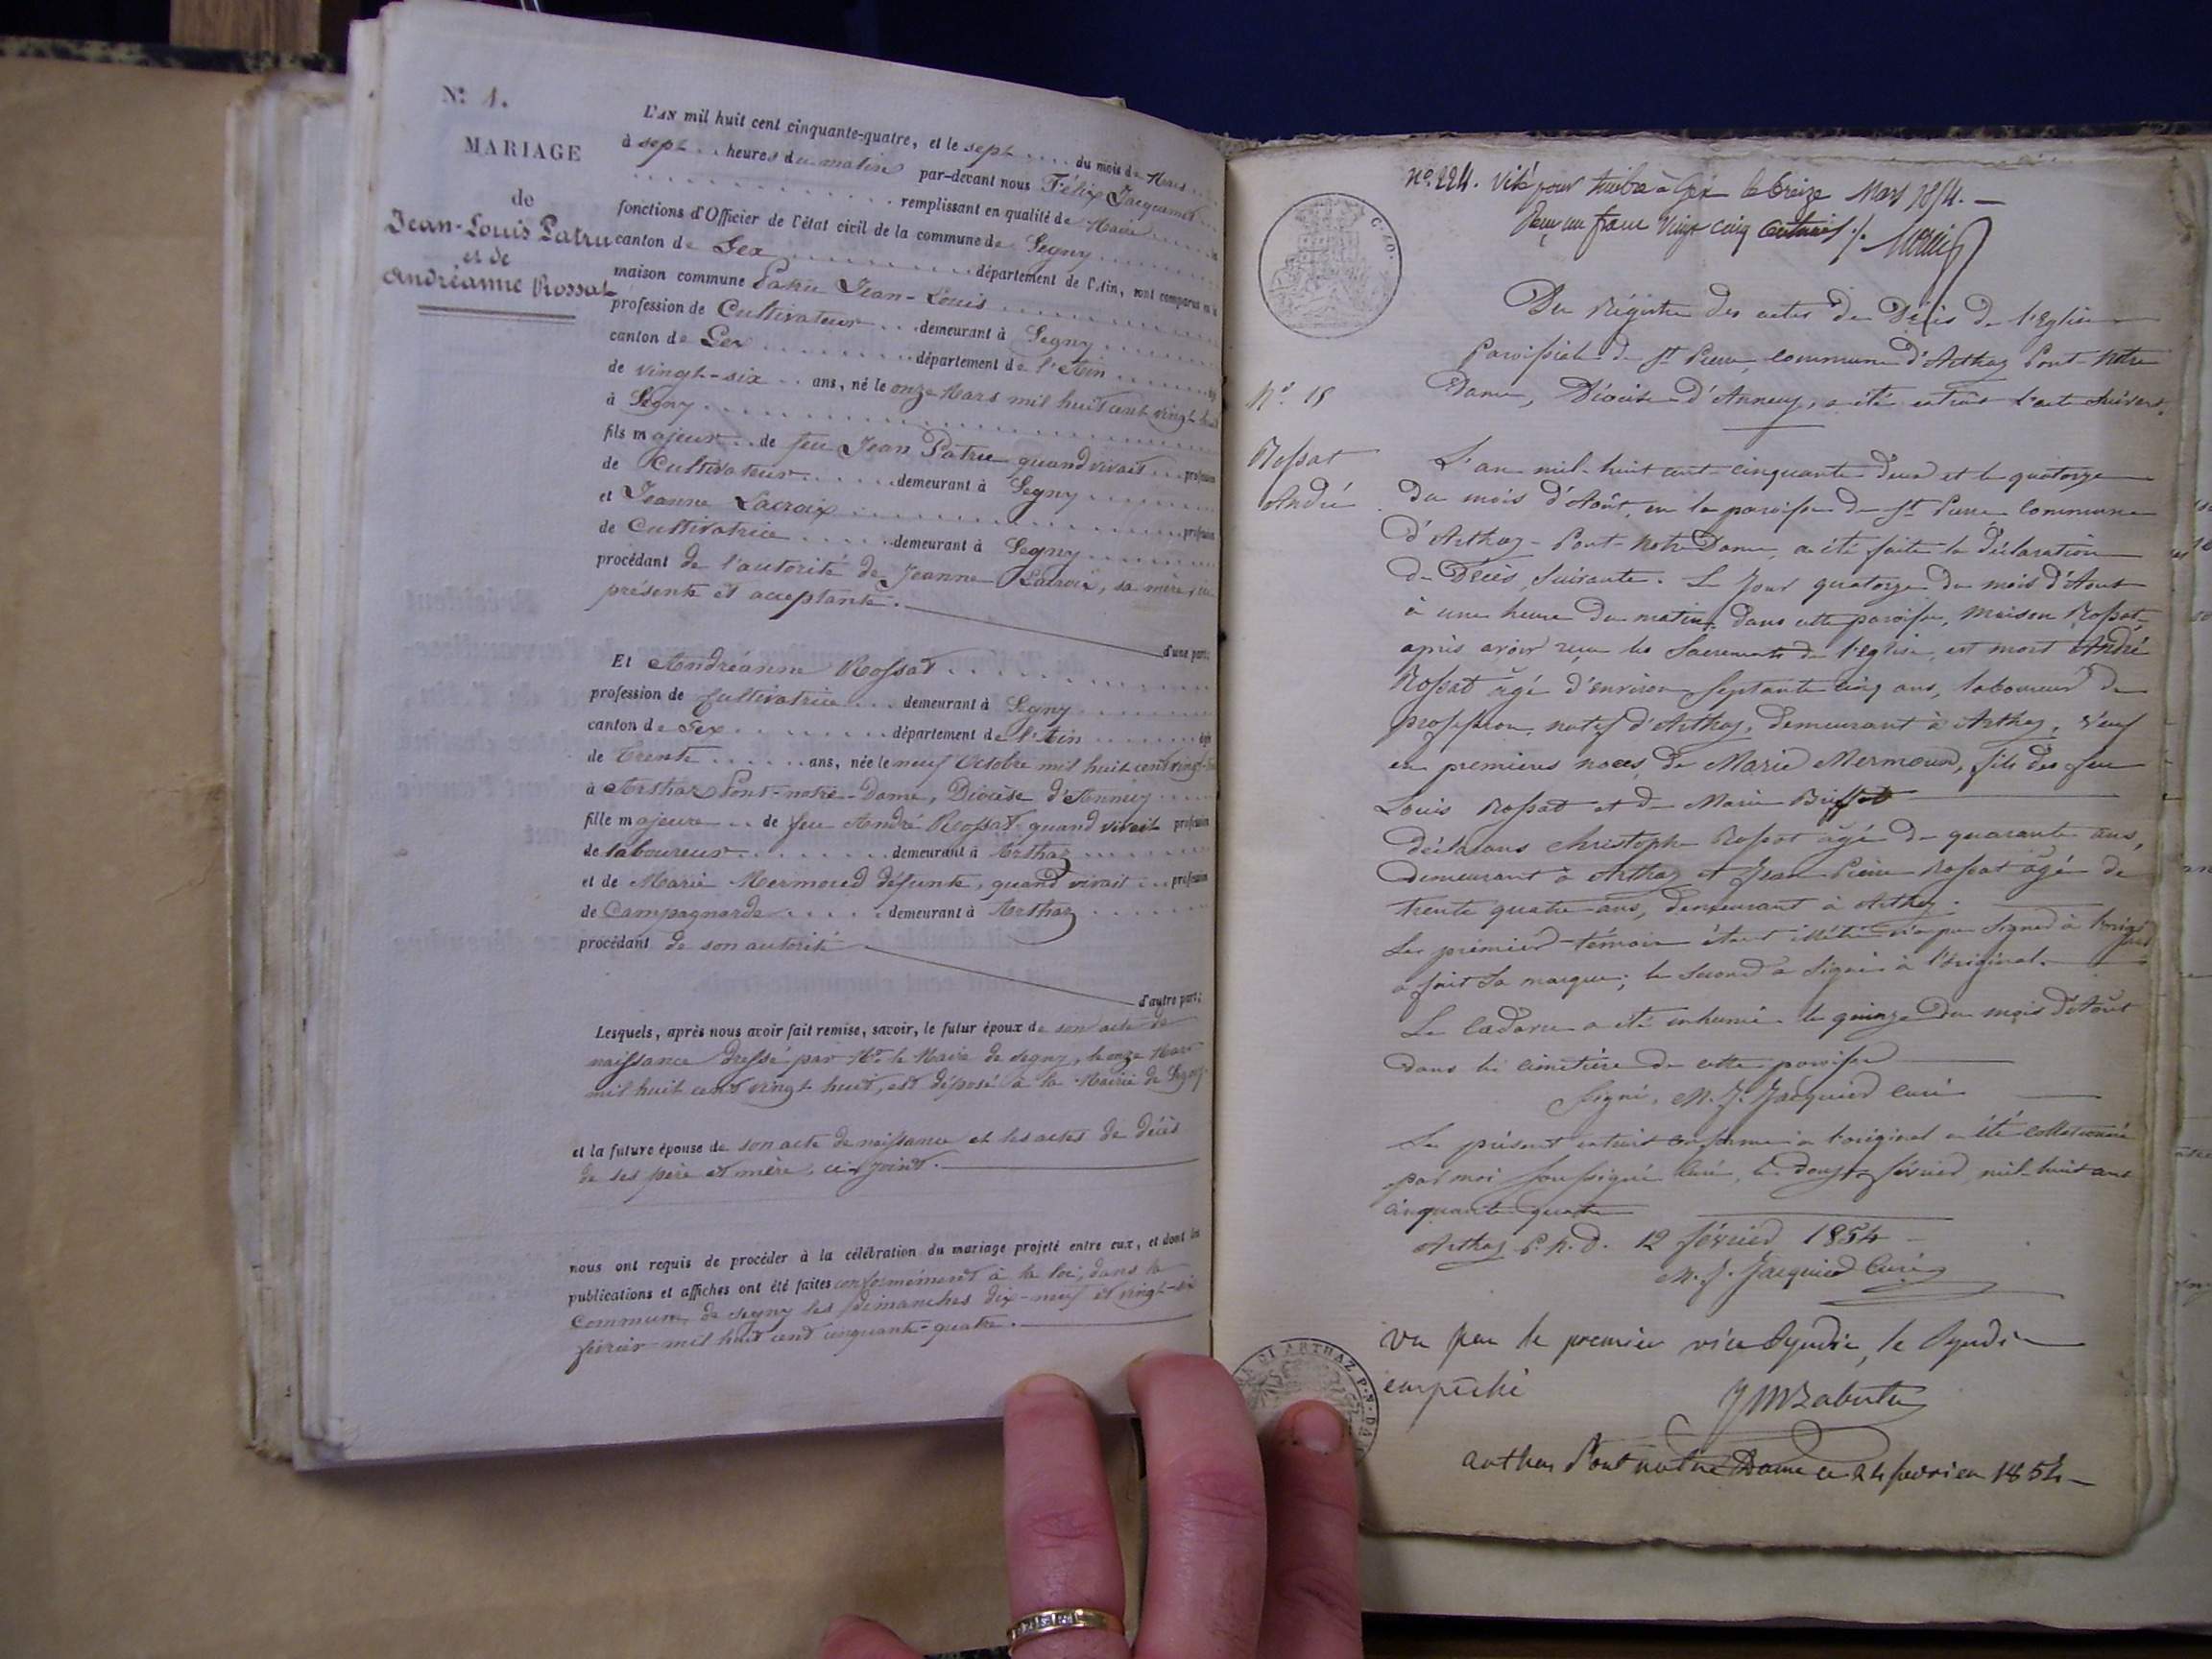 N.º 1.
MARIAGE
de
Jean-Louis Patru
et de
Andréanne Rossat
L'AN mil huit cent cinquante-quatre, et le sept .... du mois de Mars
à sept .. heures du matin par-devant nous Félix Jacquemet
remplissant en qualité de Maire
fonctions d'Officier de l'état civil de la commune de Segny
canton de Gex département de l'Ain, sont comparus en la
maison commune Patru Jean-Louis
profession de Cultivateur ... demeurant à Segny
canton de Gex département de l'Ain
de vingt-six .. ans, né le onze Mars mil huit cent vingt huit
à Segny
fils majeur .. de feu Jean Patru quand vivait ... profession
de Cultivateur demeurant à Segny
et Jeanne Lacroix profession
de Cultivatrice demeurant à Segny
procédant de l'autorité de Jeanne Lacroix, sa mère, ici
présente et acceptante.
d'une part;
Et Andréanne Rossat
profession de Cultivatrice ... demeurant à Segny
canton de Gex département de l'Ain
de Trente ans, née le neuf Octobre mil huit cent vingt-
à Arthaz Pont-notre-Dame, Diocèse d'Annecy
fille majeure .. de feu André Rossat quand vivait profession
de laboureur demeurant à Arthaz
et de Marie Mermoud défunte, quand vivait ... profession
de Campagnarde demeurant à Arthaz
procédant de son autorité
d'autre part;
Lesquels, après nous avoir fait remise, savoir, le futur époux de son acte de
naissance dressé par Mr. le Maire de Segny, le onze Mars
mil huit cent vingt huit, est déposé à la Mairie de Segny
et la future épouse de son acte de naissance et les actes de décès
de ses père et mère, ci-joint.
nous ont requis de procéder à la célébration du mariage projeté entre eux, et dont les
publications et affiches ont été faites conformément à la loi, dans la
Commune de Segny les dimanches dix-neuf et vingt-six
février mil huit cent cinquante-quatre.
Nº. 224. Visé pour timbre à Gex le treize Mars 1854.
Reçu un franc vingt cinq centimes
Du Régistre des actes de Décès de l'Eglise
Paroissiale de St Pierre, commune d'Arthaz Pont-Notre
Dame, Diocèse d'Annecy, a été extrait l'acte suivant.
Nº. 15
Rossat
André
L'an mil-huit cent-cinquante deux et le quatorze
du mois d'Août, en la paroisse de St Pierre commune
d'Arthaz-Pont-Notre Dame, a été faite la déclaration
de Décès suivante. Le jour quatorze du mois d'Aout
à une heure du matin, dans cette paroisse, maison Rossat
après avoir reçu les Sacrements de l'Eglise, est mort André
Rossat âgé d'environ septante cinq ans, laboureur de
profession, natif d'Arthaz, demeurant à Arthaz, veuf
en premieres noces de Marie Mermoud, fils des feu
Louis Rossat et de Marie
déclarans Christophe Rossat âgé de quarante ans,
demeurant à Arthaz et Jean Pierre Rossat âgé de
trente quatre ans, demeurant à Arthaz.
Le premier témoin étant illétré n'a pu signer à l'original
a fait sa marque; le second a signé à l'original.
Le cadavre a été inhumé le quinze du mois d'Août
dans le cimetière de cette paroisse
Signé, M. J. Jacquier Curé
Le présent extrait conforme à l'original a été collationné
par moi soussigné Curé, le douze février mil-huit cent
cinquante quatre
Arthaz P. N. D. 12 février 1854
M. J. Jacquier Curé
Vu par le premier vice Syndic, le Syndic
empêché
Arthaz Pont notre Dame ce 24 fevrier 1854
ARTHAZ P. N. DAME